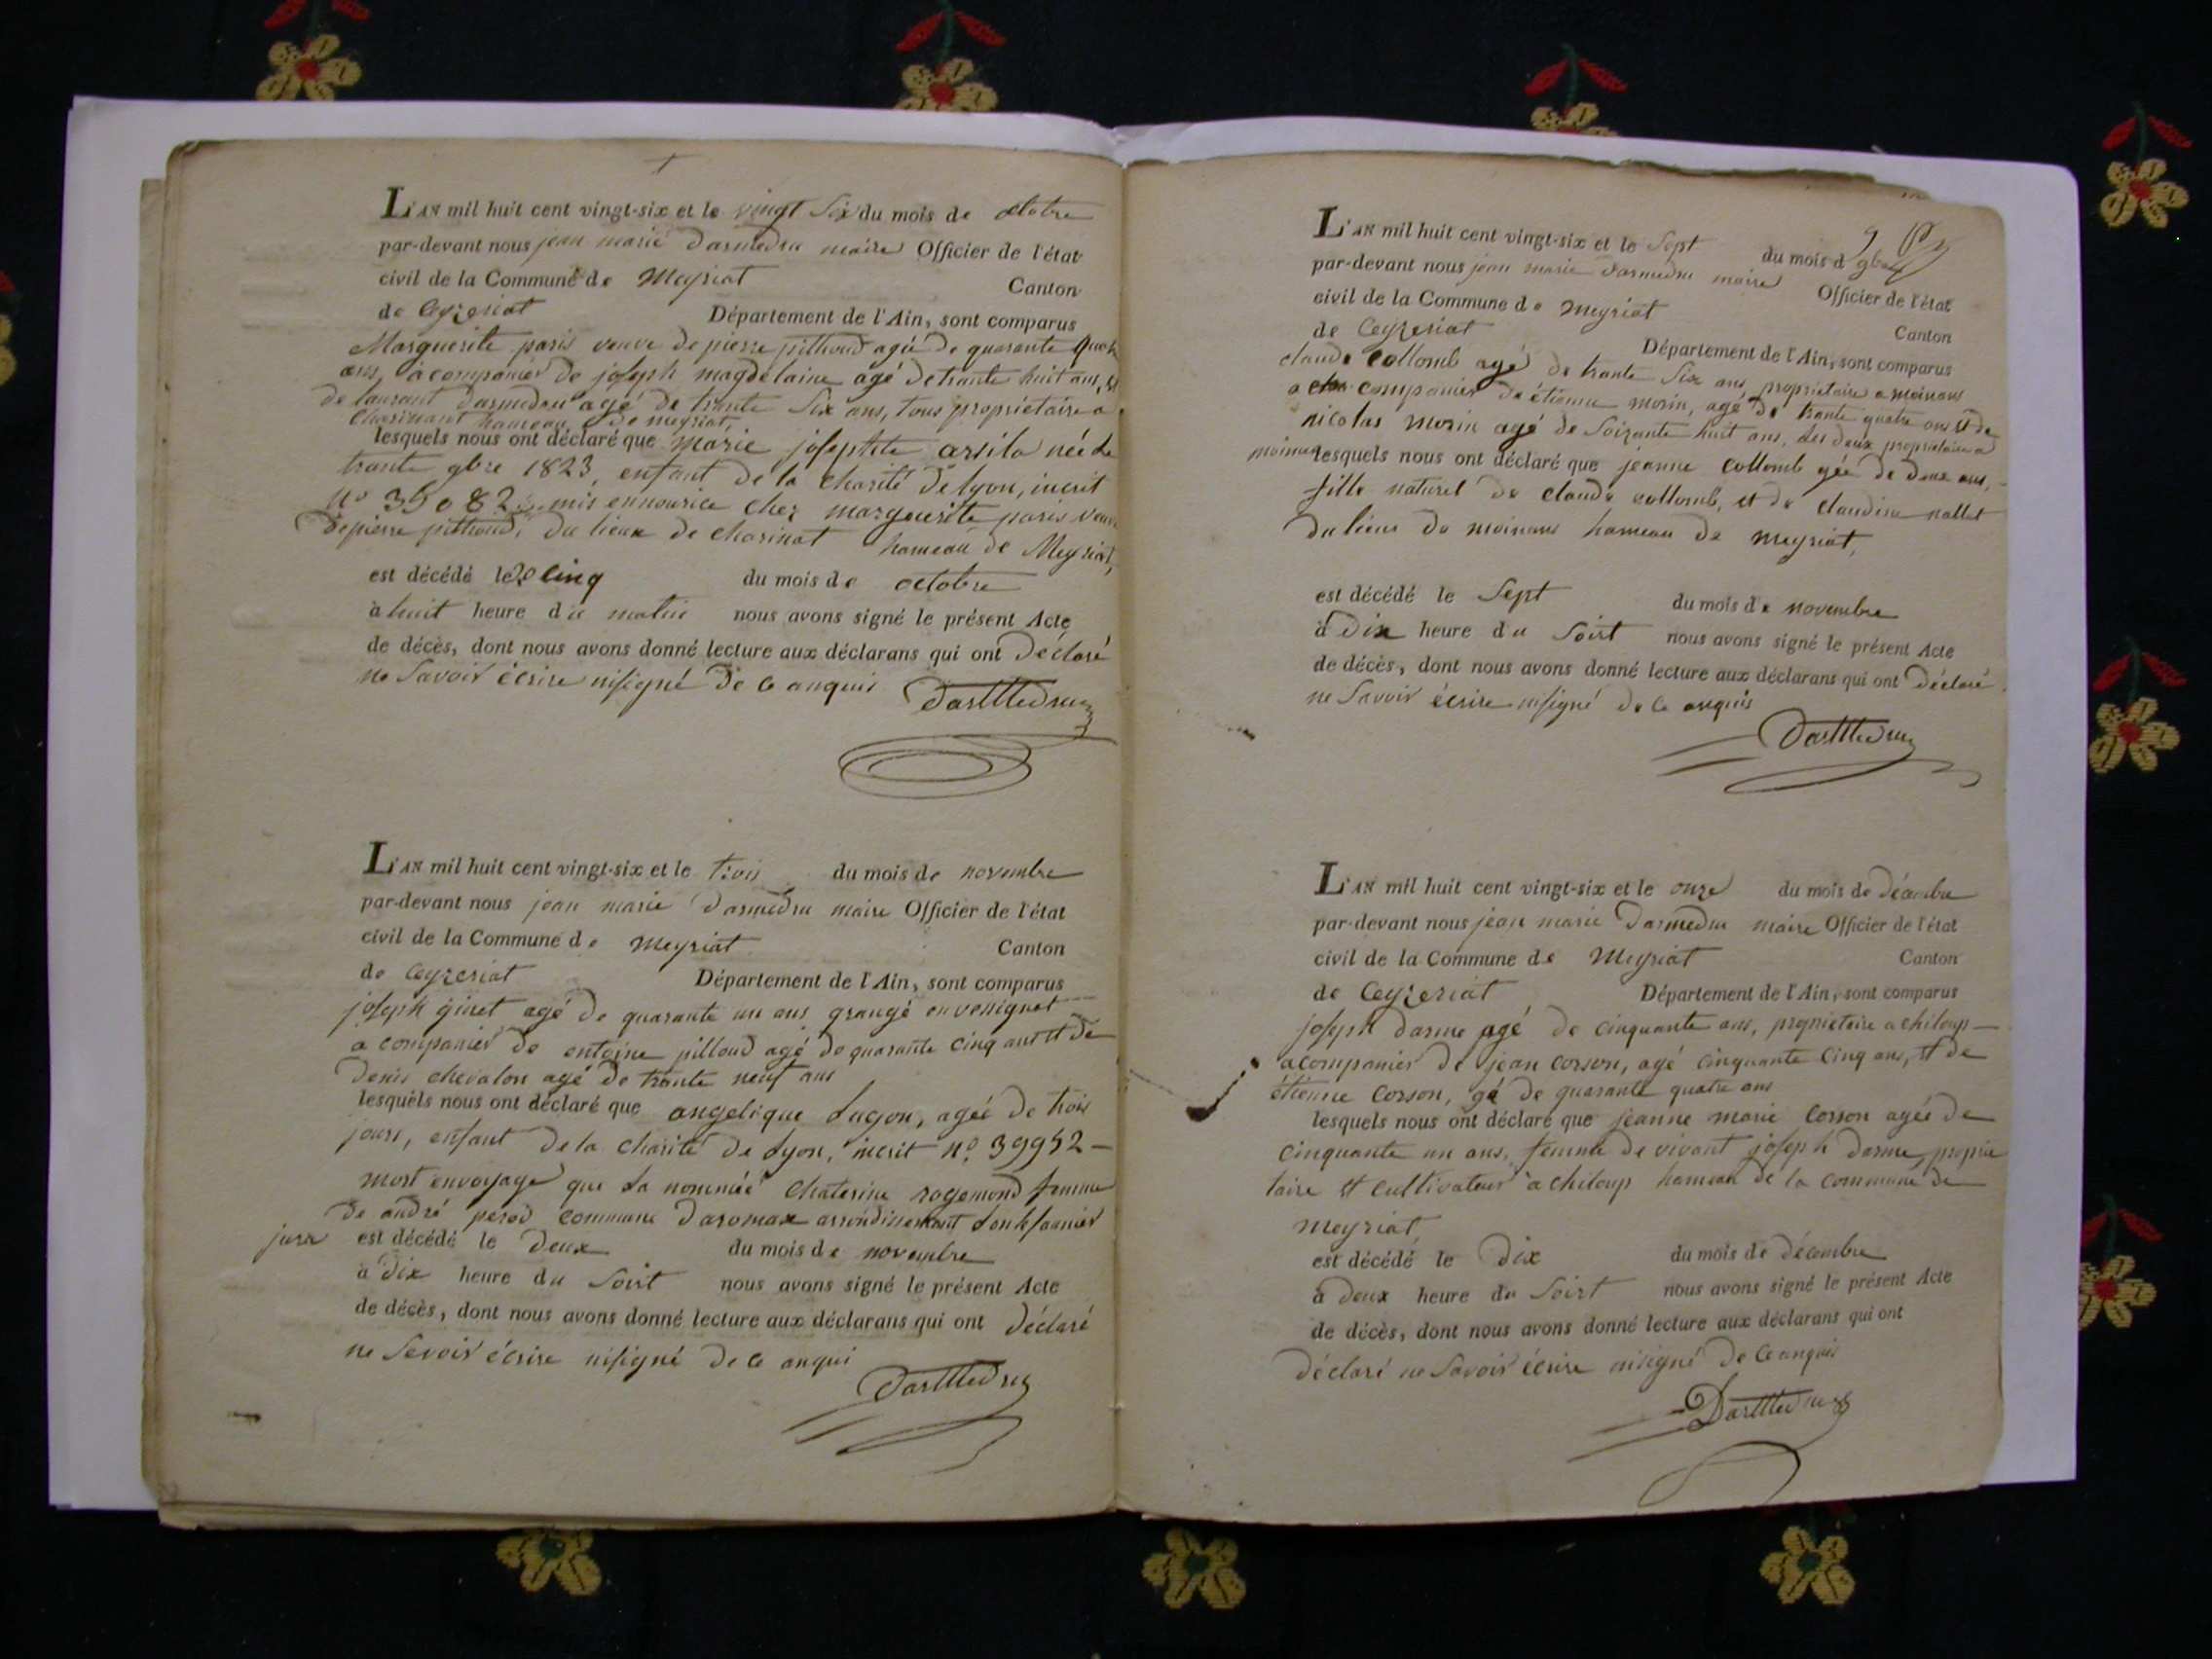 L'AN mil huit cent vingt-six et le vingt six du mois de octobre
par-devant nous jean marie darmedru maire Officier de l'état
civil de la Commune de Meyriat Canton
de Ceyzeriat Département de l'Ain, sont comparus
Marguerite paris veuve de pierre pithoud agée de quarante
ans, acompanier de joseph magdelaine agé de trante huit ans, et
de laurant darmedru agé de trante six ans, tous propriétaire a
hameau de meyriat,
lesquels nous ont déclaré que marie josephte arsila née le
trante gbre 1823, enfant de la charité de lyon, inscrit
n° 35082 mis ennourice chez marguerite paris veuve
de pierre pithoud, du lieux de charinat hameau de Meyriat,
est décédé le 20 cinq du mois de octobre
à huit heure du matin nous avons signé le présent Acte
de décès, dont nous avons donné lecture aux déclarans qui ont déclaré
ne savoir écrire nisigné de ce anquis
Darmedru
L'AN mil huit cent vingt-six et le trois du mois de novembre
par-devant nous jean marie darmedru maire Officier de l'état
civil de la Commune de meyriat Canton
de Ceyzeriat Département de l'Ain, sont comparus
joseph ginet agé de quarante un ans grangé
a companier de antoine pilloud agé de quarante cinq ans et de
denis chevalon agé de trante neuf ans
lesquels nous ont déclaré que angelique Luçon, agée de trois
jours, enfant de la charité de Lyon, inscrit n° 39952 -
mort envoyage que la nommée chaterine rogemond femme
de andré perod commune daromax arrondissement
jura est décédé le deux du mois de novembre
à dix heure du soirt nous avons signé le présent Acte
de décès, dont nous avons donné lecture aux déclarans qui ont déclaré
ne savoir écrire nisigné de ce anqui
Darmedru
L'AN mil huit cent vingt-six et le sept du mois d 9bre
par-devant nous jean marie darmedru maire Officier de l'état
civil de la Commune de meyriat
de Ceyzeriat Canton
Département de l'Ain, sont comparus
claude collomb agé de trante six ans propriétaire a moinans
a companier de étienne morin, agé de trante quatre ans et de
nicolas morin agé de soixante huit ans, les deux propriétaire a
moinans lesquels nous ont déclaré que jeanne collomb gée de deux ans,
fille naturel de claude collomb, et de claudine nallet
du lieux de moinans hameau de meyriat,
est décédé le sept du mois de novembre
à dix heure du soirt nous avons signé le présent Acte
de décès, dont nous avons donné lecture aux déclarans qui ont déclaré
ne savoir écrire nisigné de ce anquis
Darmedru
L'AN mil huit cent vingt-six et le onze du mois de décembre
par-devant nous jean marie darmedru maire Officier de l'état
civil de la Commune de Meyriat Canton
de Ceyzeriat Département de l'Ain, sont comparus
joseph darme agé de cinquante ans, propriétaire a chiloup -
acompanier de jean corson, agé cinquante cinq ans, et de
étienne corson, gé de quarante quatre ans
lesquels nous ont déclaré que jeanne marie corson agée de
cinquante un ans, femme de vivant joseph darme, proprié
taire et cultivateur à chiloup hameau de la commune de
meyriat
est décédé le dix du mois de décembre
à deux heure du soirt nous avons signé le présent Acte
de décès, dont nous avons donné lecture aux déclarans qui ont
déclaré ne savoir écrire nisigné de ce anquis
Darmedru